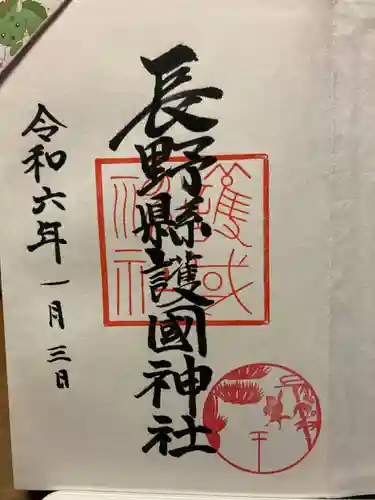 長野縣護國神社
令和六年一月三日
護或神社